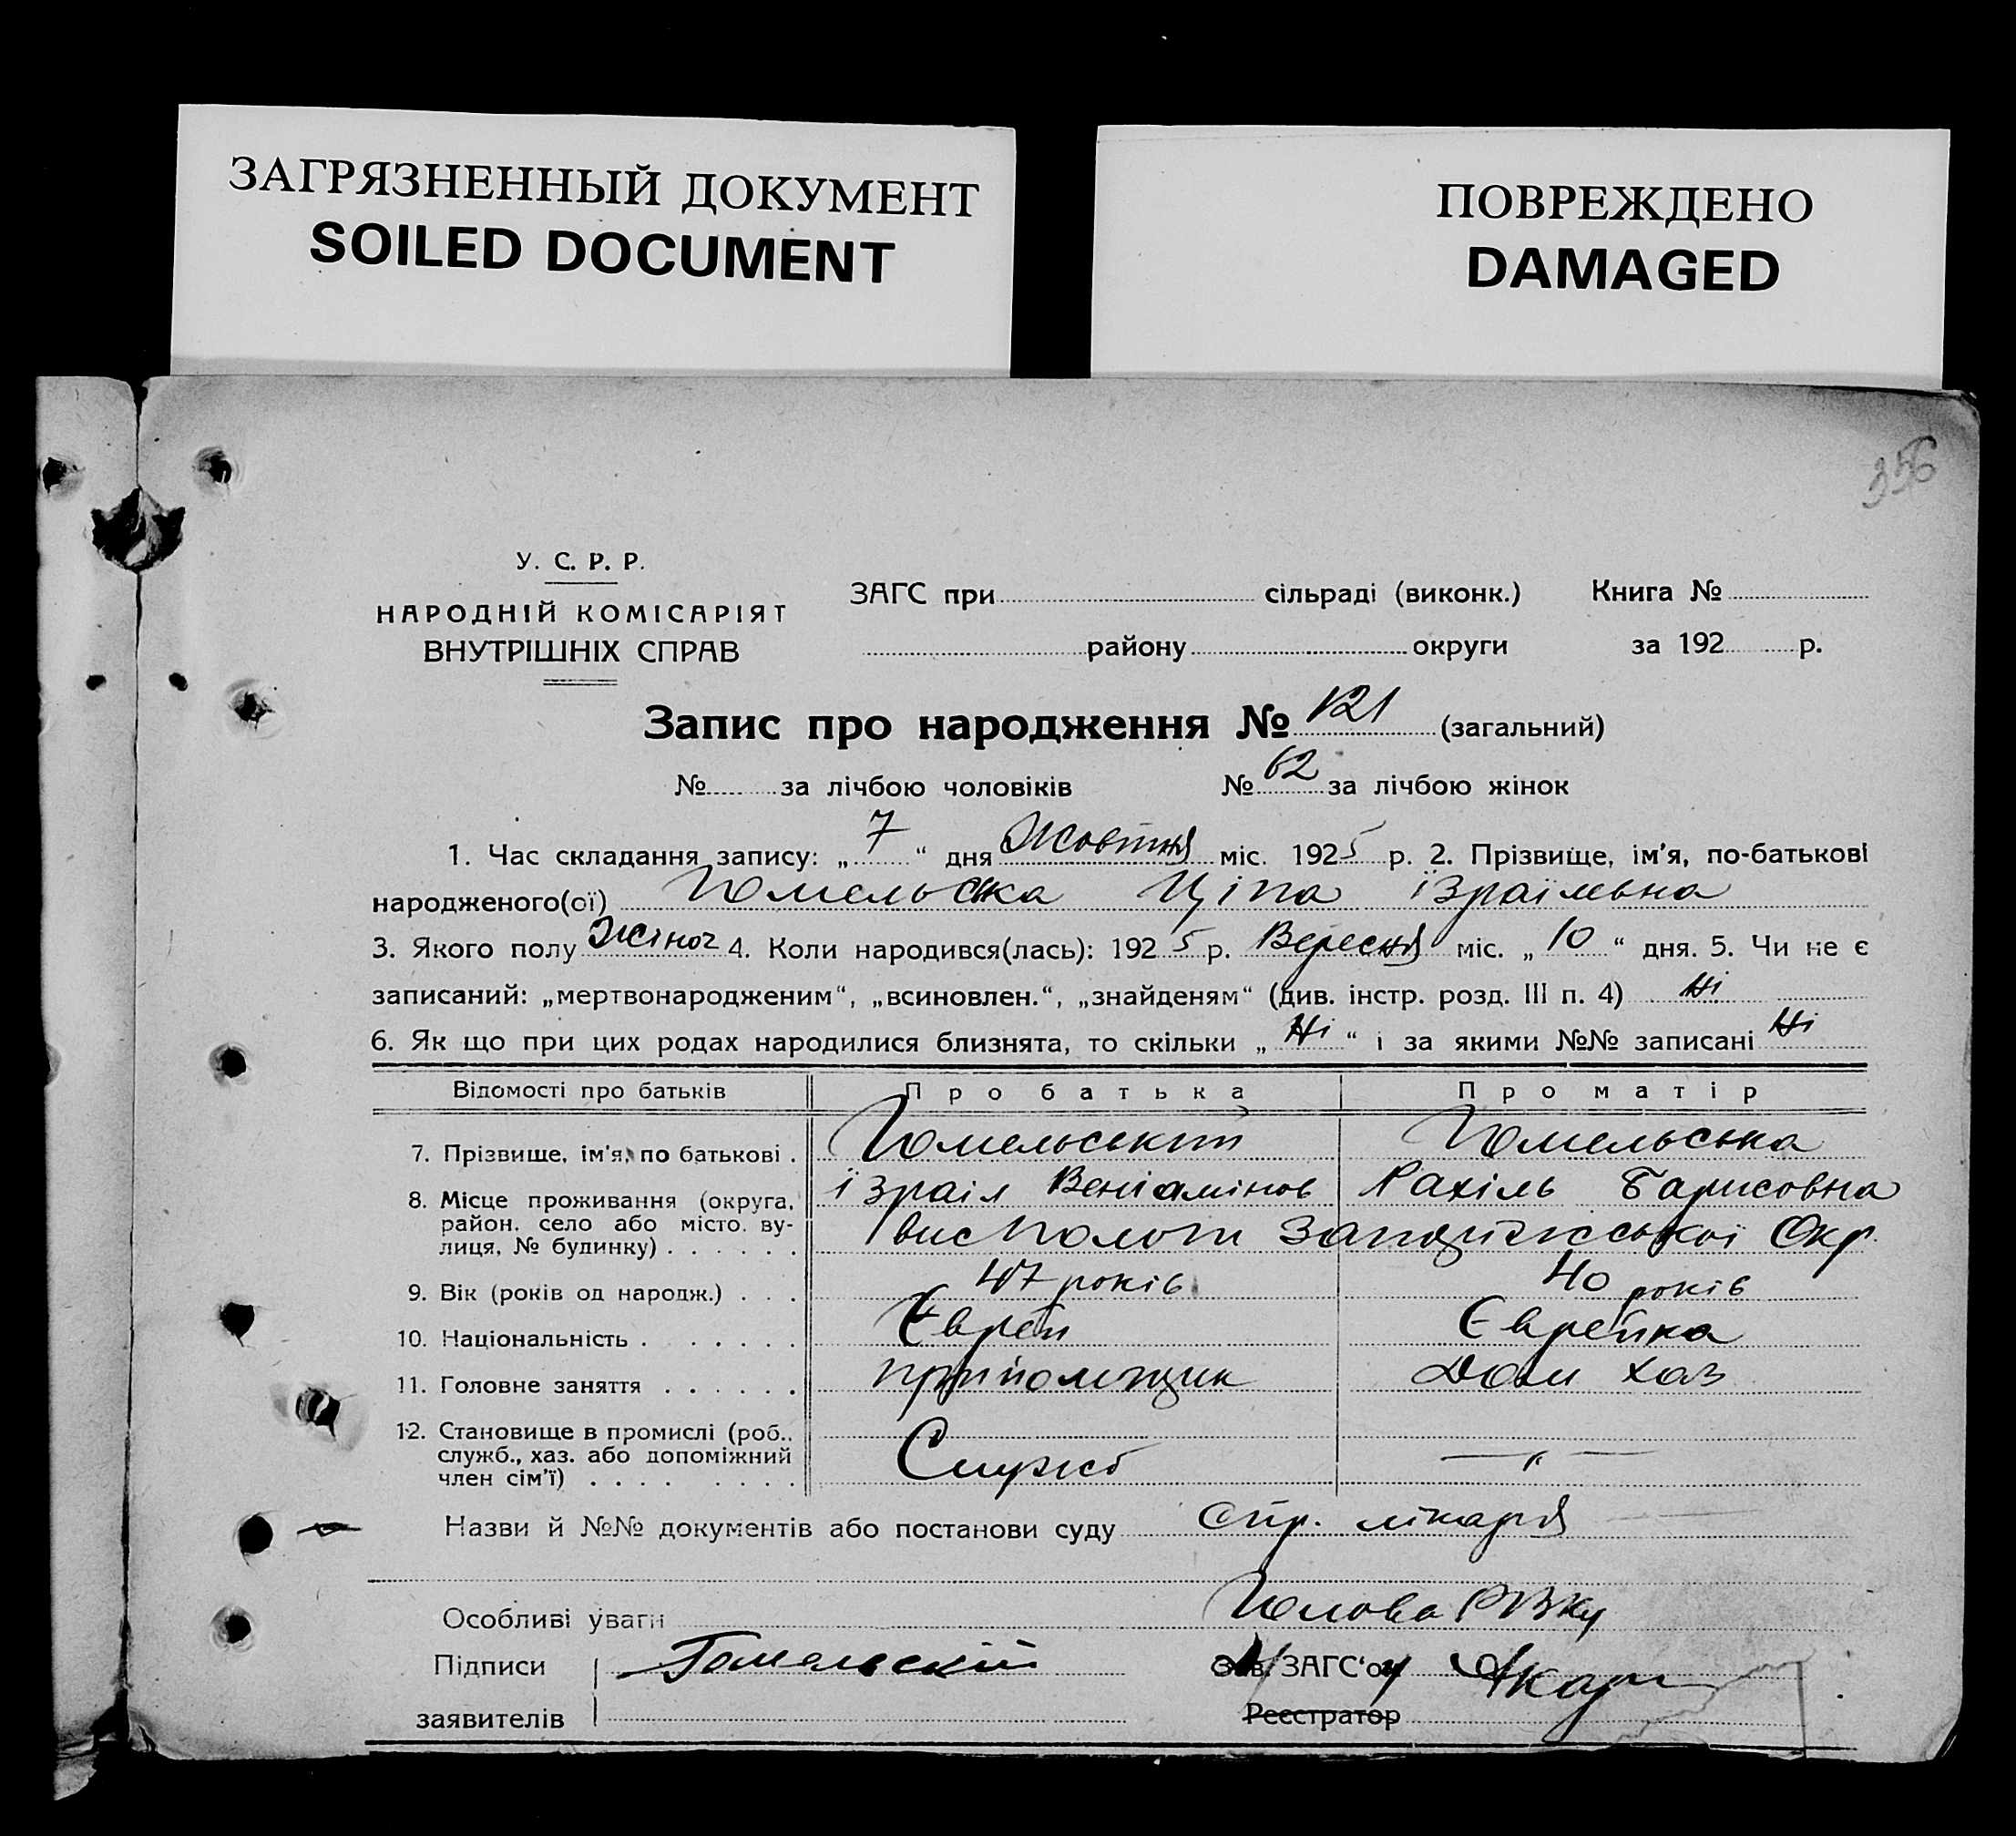 ЗАГРЯЗНЕННЫЙ ДОКУМЕНТ
SOILED DOCUMENT
ПОВРЕЖДЕНО
DAMAGED
356
У. С. Р. Р.
НАРОДНІЙ КОМІСАРІЯТ
ВНУТРІШНІХ СПРАВ
ЗАГС при сільраді (виконк.) Книга №
району округи за 192 р.
Запис про народження № 121 (загальний)
№ за лічбою чоловіків № 62 за лічбою жінок
1. Час складання запису: „ 7 “ дня Жовтня міс. 1925 р. 2. Прізвище, ім'я, по-батькові
народженого(ої) Гомельська Ціпа Ізраїльвна
3. Якого полу Жіноч 4. Коли народився(лась): 1925 р. Вересня міс. „ 10 “ дня. 5. Чи не є
записаний: „мертвонародженим“, „всиновлен.“, „знайденям“ (див. інстр. розд. III п. 4) Ні
6. Як що при цих родах народилися близнята, то скільки „ Ні “ і за якими №№ записані Ні
Відомості про батьків Про батька Про матір
7. Прізвище, ім'я, по батькові . Гомельський Гомельська
Ізраіл Веніамінов Рахіль Барисовна
8. Місце проживання (округа,
район, село або місто, ву-
лиця, № будинку) . . . . . . Запоріжської Окр.
9. Вік (років од народж.) . . . 47 років 40 років
10. Національність . . . . . . . Єврей Єврейка
11. Головне заняття . . . . . . прийомщик Дом хаз
12. Становище в промислі (роб.,
служб., хаз. або допоміжний
член сім'ї) . . . . . . . . Служб — " —
Назви й №№ документів або постанови суду Спр. лікаря
Особливі уваги Голова РВКу
Підписи Гомельскій Зав. ЗАГС'ом
заявителів Реєстратор